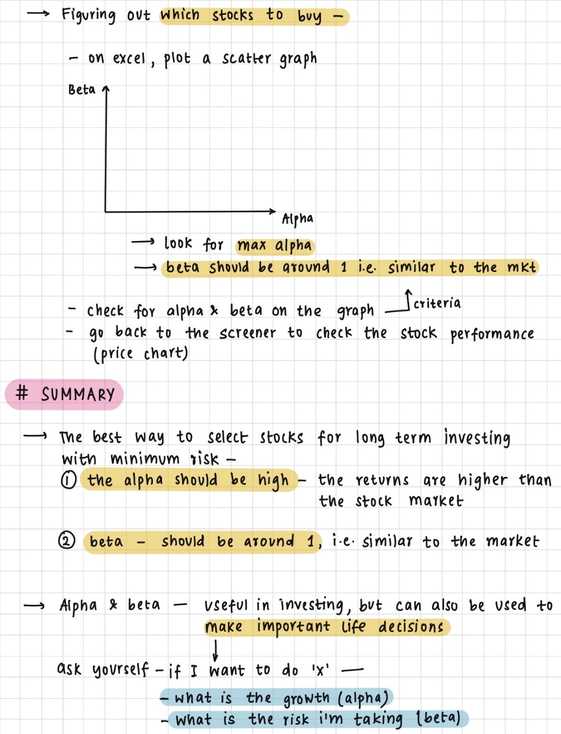 → Figuring out which stocks to buy –
– on excel, plot a scatter graph
Beta
Alpha
→ look for max alpha
→ beta should be around 1 i.e. similar to the mkt
criteria
– check for alpha & beta on the graph
– go back to the screener to check the stock performance
(price chart)
# SUMMARY
→ The best way to select stocks for long term investing
with minimum risk –
① the alpha should be high – the returns are higher than
the stock market
② beta – should be around 1, i.e. similar to the market
→ Alpha & beta – useful in investing, but can also be used to
make important life decisions
ask yourself – if I want to do 'x' —
– what is the growth (alpha)
– what is the risk i'm taking (beta)